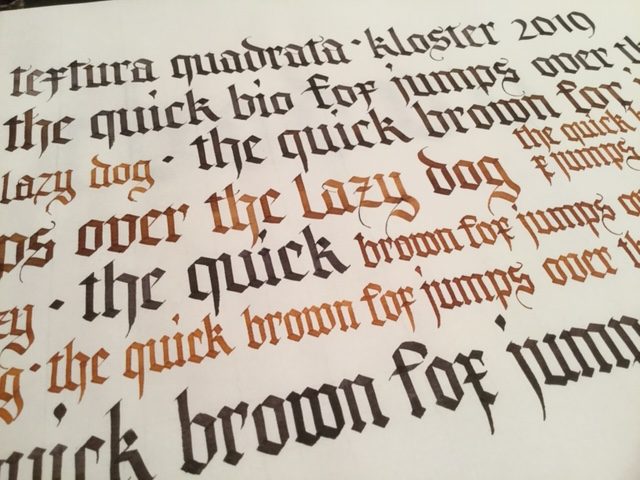 textura quadrata · kloster 2019
the quick bio fox jumps over th
lazy dog · the quick brown fox
the quick
ps over the lazy dog
x jumps
zy · the quick brown fox jumps o
g · the quick brown fox jumps over th
uick brown fox jum